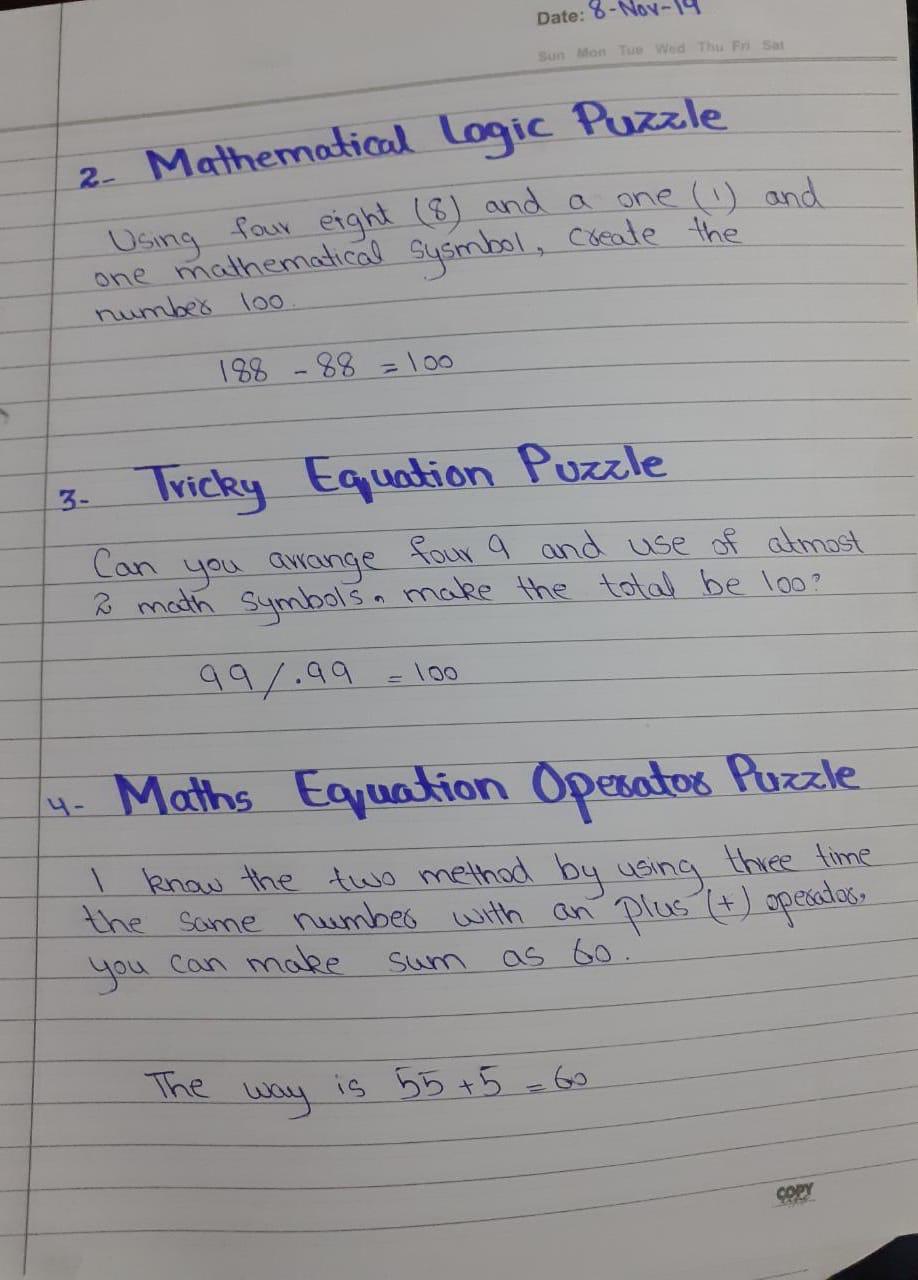 Date: 8-Nov-19
Sun Mon Tue Wed Thu Fri Sat
2- Mathematical Logic Puzzle
Using four eight (8) and a one (1) and
one mathematical sysmbol, create the
number 100.
188 - 88 = 100
3- Tricky Equation Puzzle
Can you arrange four 9 and use of atmost
2 math symbols, make the total be 100?
99/.99 = 100
4- Maths Equation Operator Puzzle
I know the two method by using three time
the same number with an plus (+) operator,
you can make sum as 60.
The way is 55 + 5 = 60
COPY